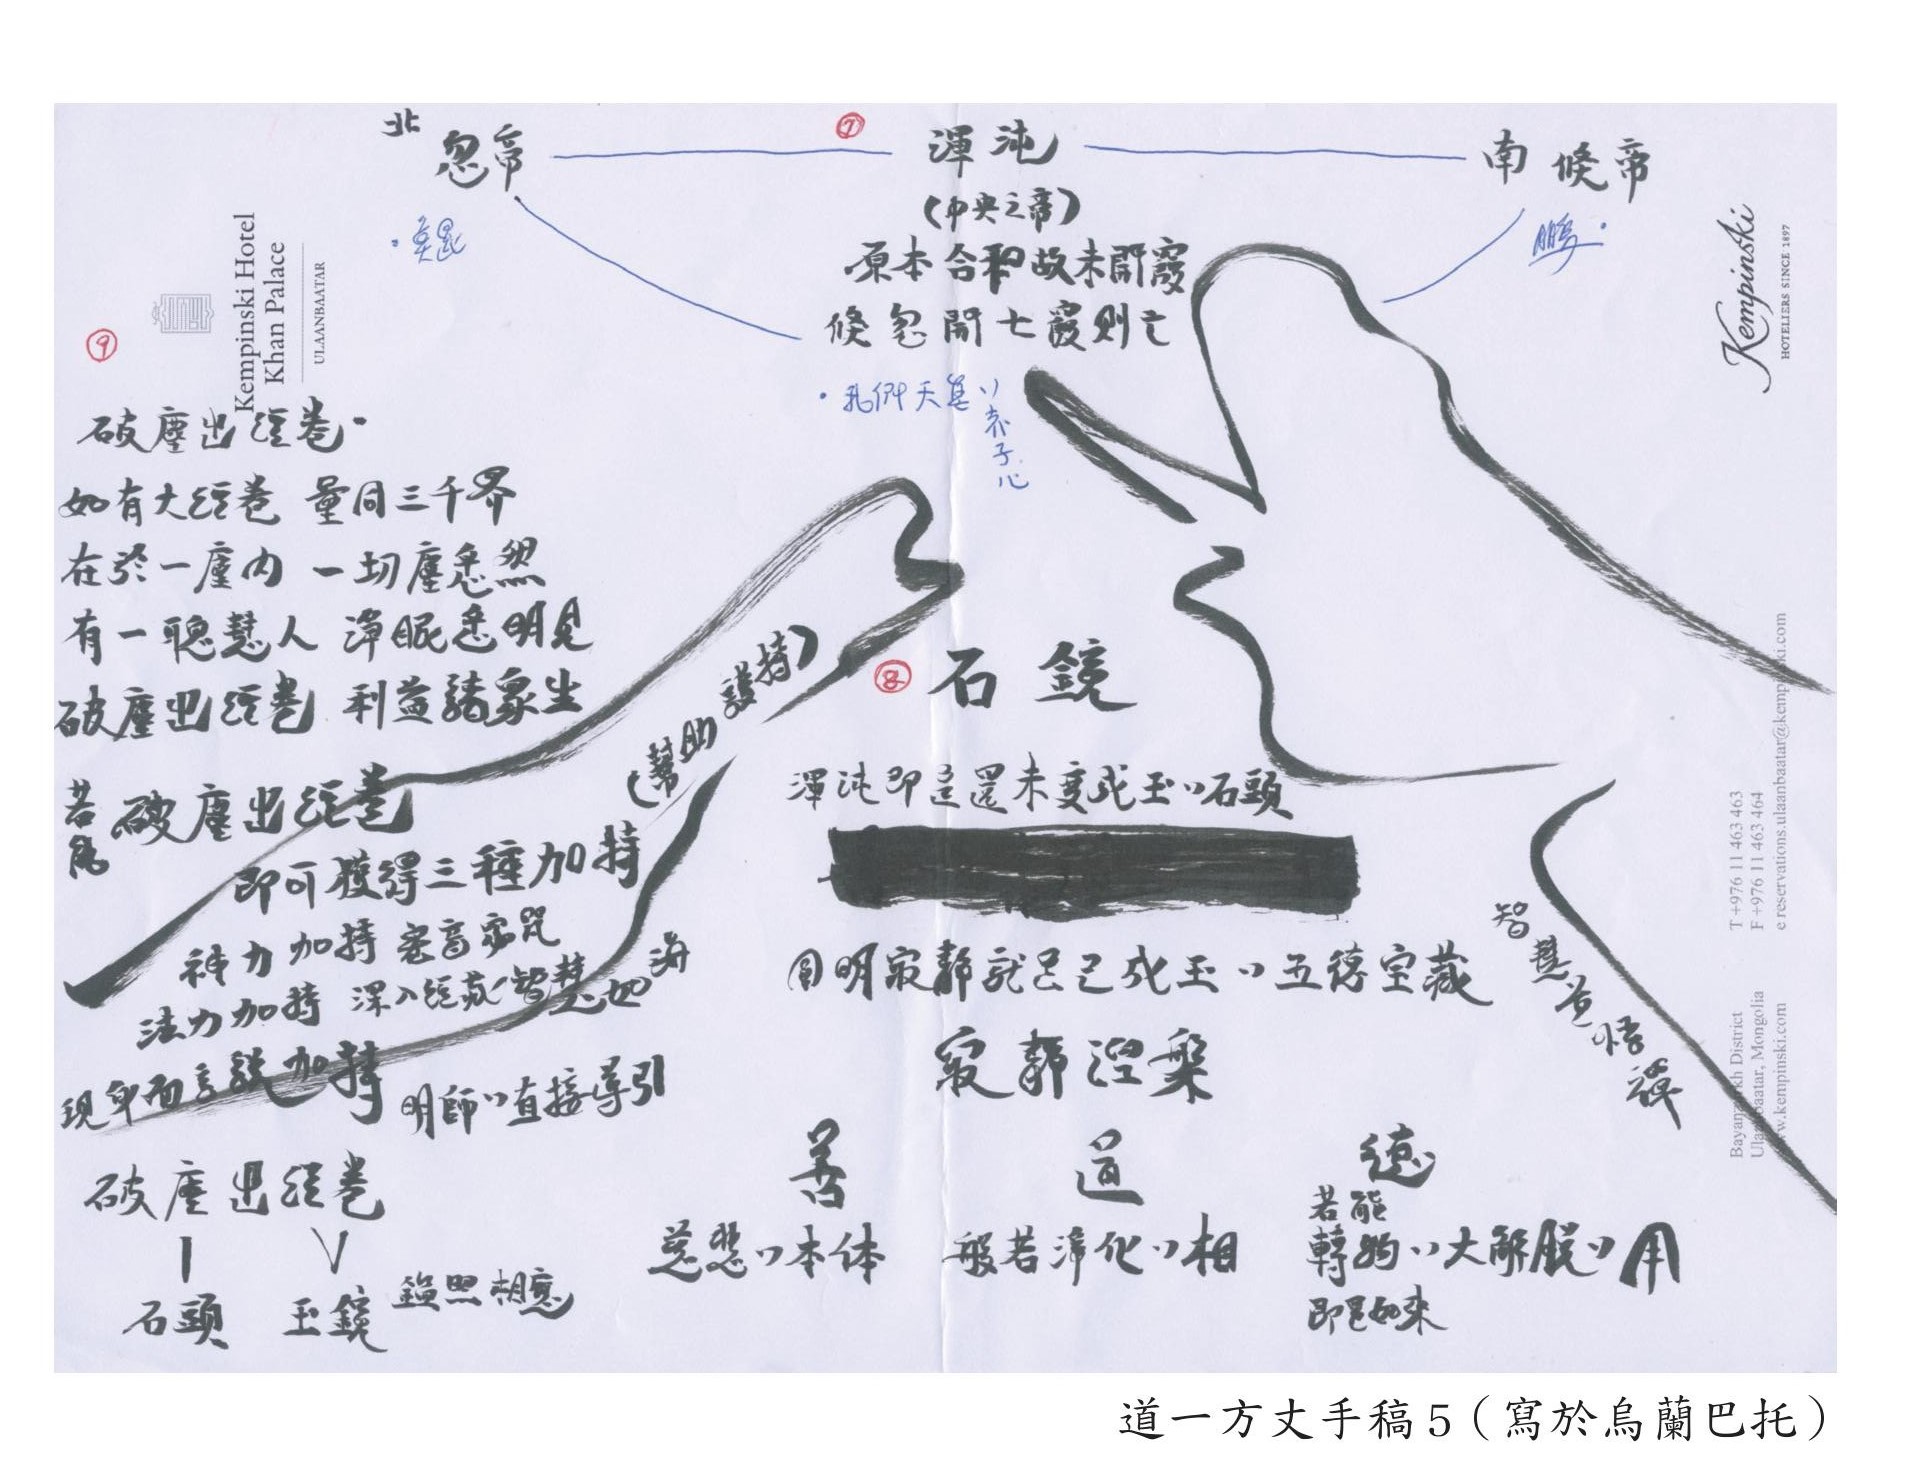 北 忽帝
⑦
渾沌
南 倏帝
(中央之帝)
原本合和故未開竅
倏忽開七竅則亡
鵬
赤子心
Kempinski Hotel
Khan Palace
ULAANBAATAR
Kempinski
HOTELIERS SINCE 1897
⑨
破塵出經卷
如有大經卷 量同三千界
在於一塵內 一切塵悉然
有一聰慧人 淨眼悉明見
破塵出經卷 利益諸眾生
若能 破塵出經卷
即可獲得三種加持
神力加持 密音密咒
法力加持 深入經藏智慧如海
現身面言說加持 明師的直接導引
破塵出經卷
石頭 玉鏡 鏡照相應
(幫助護持)
⑧ 石鏡
渾沌即是還未變成玉的石頭
圓明寂靜就是已成玉的五德宝藏
寂靜涅槃
善 道 德
慈悲的本体
般若淨化的相
若能
轉物的大解脫的用
即是如來
T +976 11 463 463
F +976 11 463 464
e reservations.ulaanbaatar@kempinski.com
Bayanzurkh District
Ulaanbaatar, Mongolia
www.kempinski.com
道一方丈手稿5（寫於烏蘭巴托）